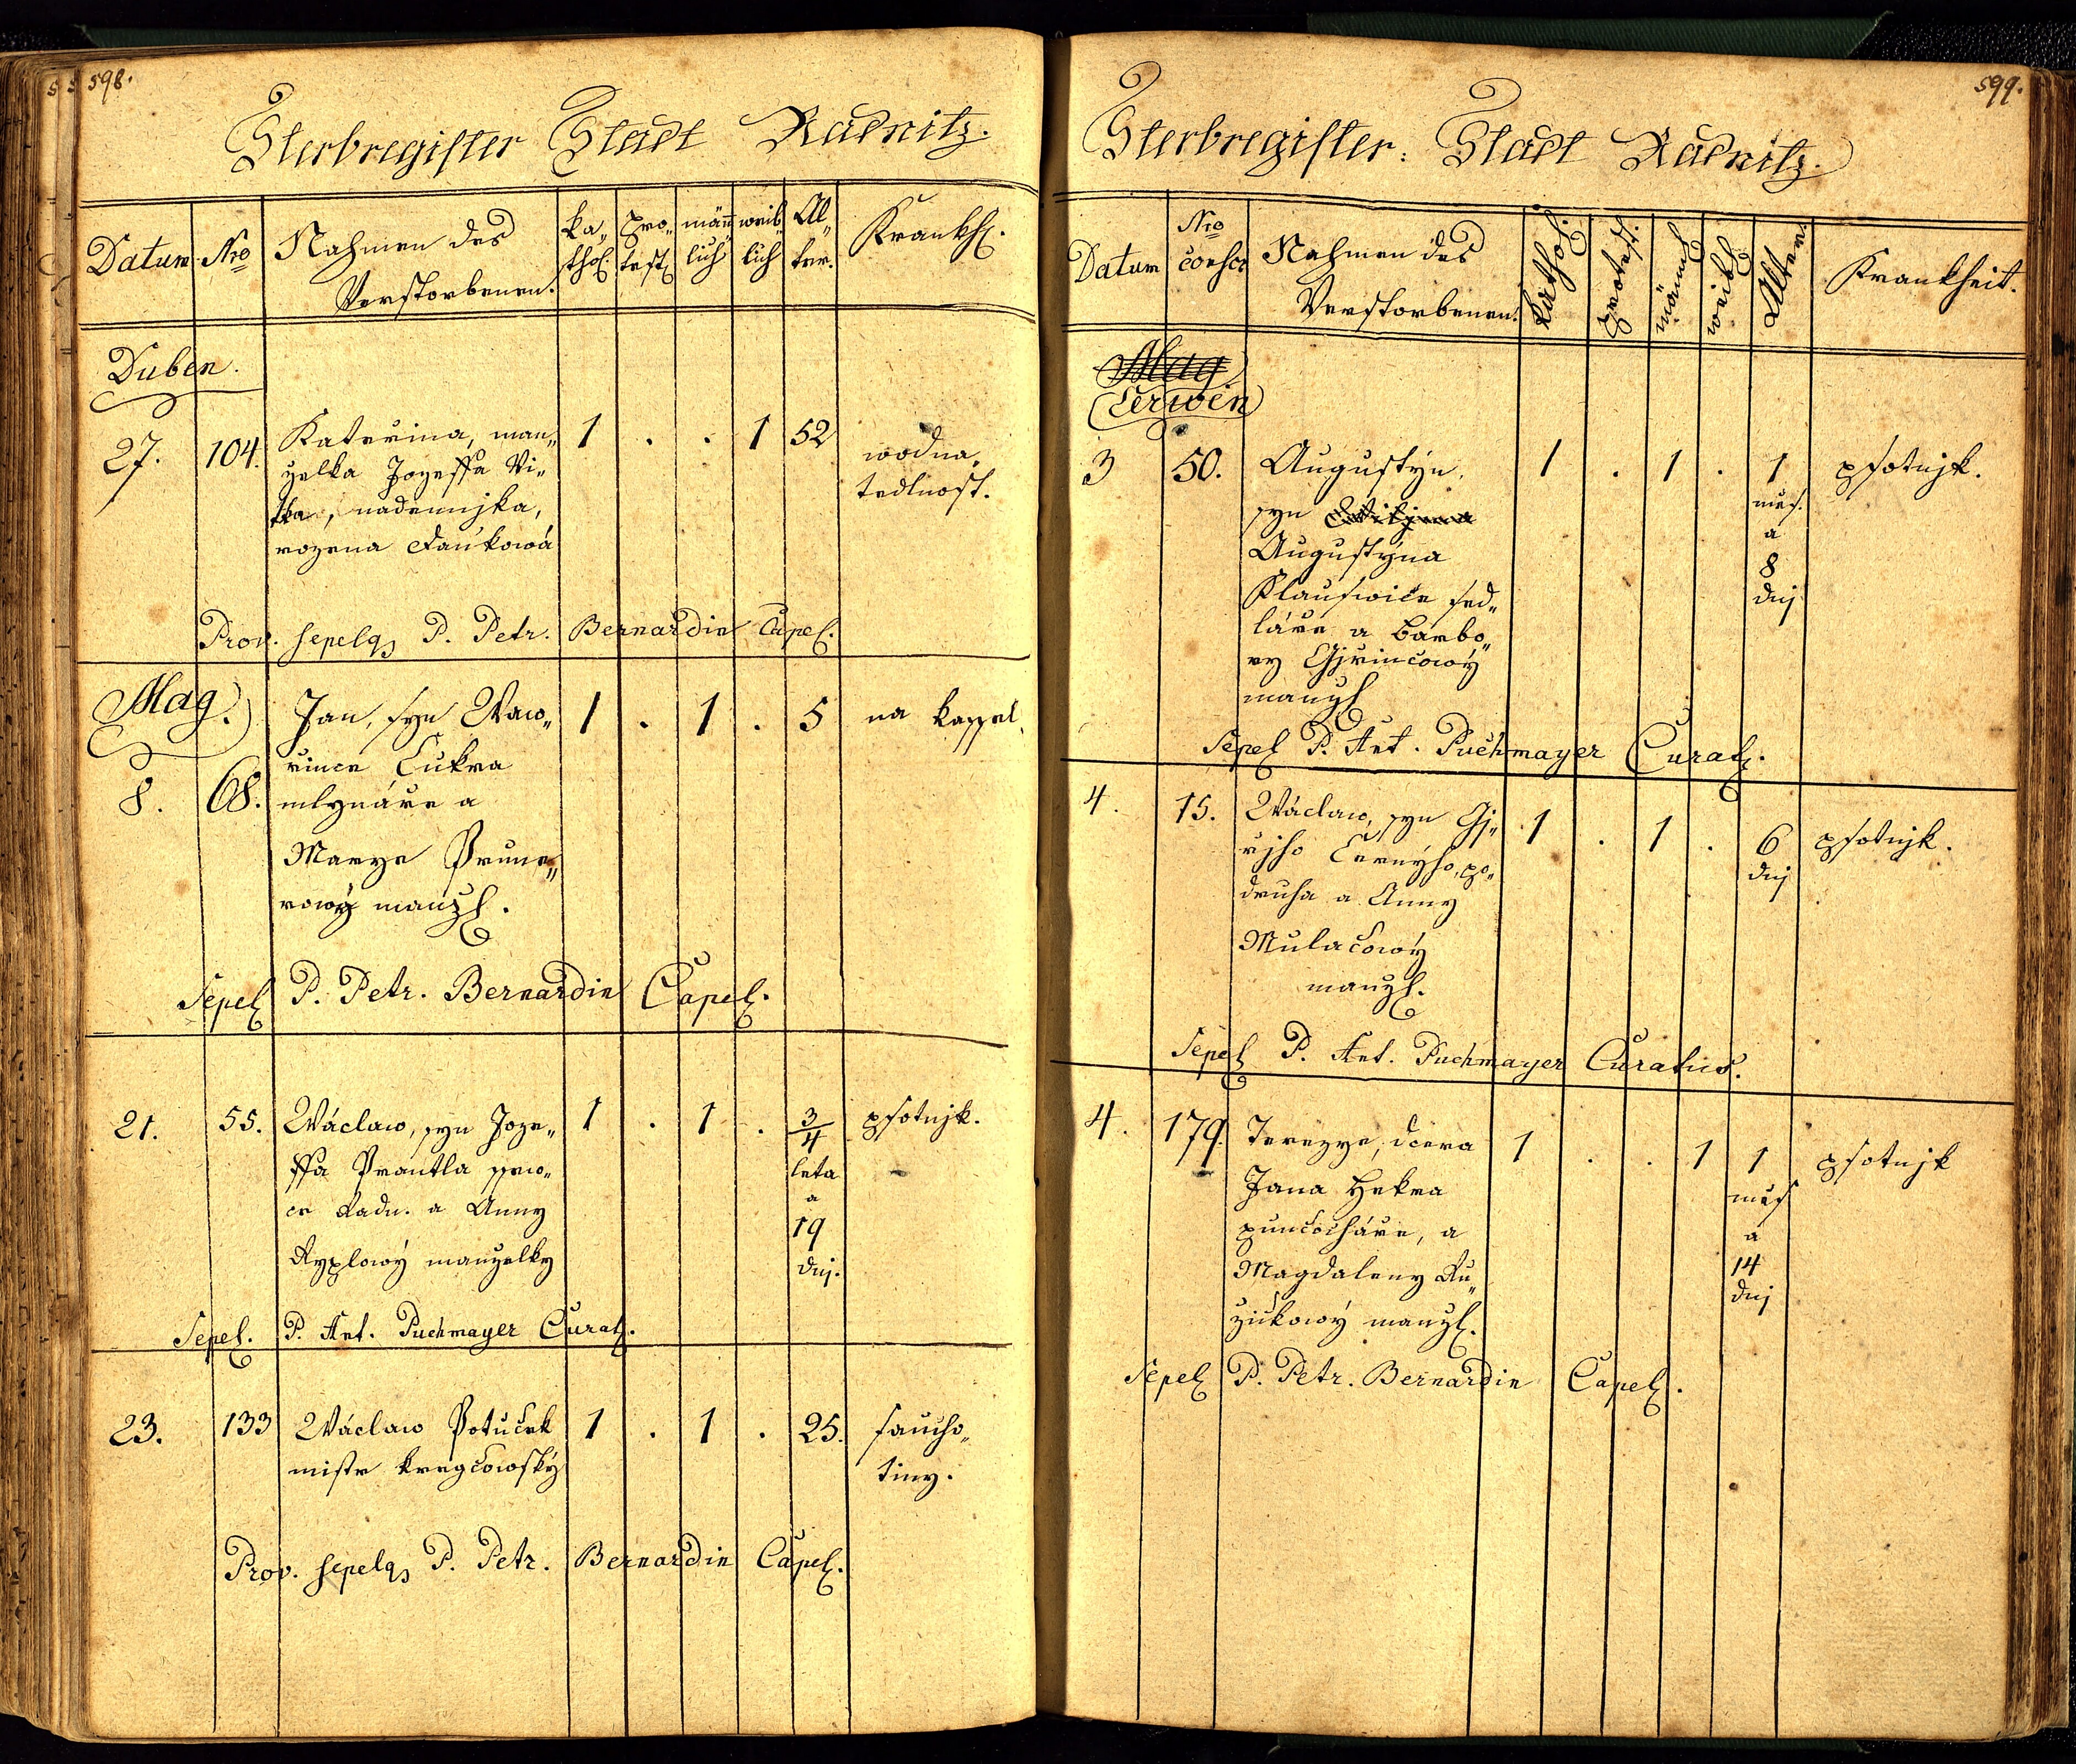 598.
Sterbregister Stadt Radnitz.
Datum
Nro
Nahmen des
Verstorbenen.
ka„
thol.
pro„
test.
män„
lich
weib„
lich
Al„
ter.
Krankh.
Duben.
27.
104.
Kateřina, man„
zelka Jozeffa Vi„
tka, nadennjka,
rozena Faukowá
1 . . 1 52
wodna„
tedlnost.
Prov. sepelq P. Petr. Bernardin Capel.
Mag.
8.
68.
Jan, syn Waw„
řince Cukra
mlynáře a
Marye Prune„
rowý manzl.
1 . 1 . 5
na kassel.
Sepel P. Petr. Bernardin Capel.
21.
55.
Wáclaw, syn Joze„
ffa Prantla
Radn. a Anny
Ryplowý manzelky
1 . 1 . 3/4
leta
a
19
dnj.
psotnjk.
Sepel. P. Ant. Puchmayer Curat.
23.
133
Wáclaw Potuček
mistr kregčowský
1 . 1 . 25.
saucho„
tiny.
Prov. sepelq P. Petr. Bernardin Capel.
599.
Sterbregister: Stadt Radnitz.
Datum
Nro
conscr
Nahmen des
Verstorbenen.
Kathol.
Protest.
männl.
weibl.
Alter
Krankheit.
Mag
Čerwen
3
50.
Augustýn,
syn
Augustýna
Klauswice sed„
láře a Barbo„
ry Gjřincowý
manzl
1 . 1 . 1
měs.
a
8
dnj
psotnjk.
Sepel P. Ant. Puchmayer Curat.
4.
15.
Wáclaw, syn Gj„
řjho Černýho, po„
druha a Anny
Mulačowý
manzl.
1 . 1 . 6
dnj
psotnjk.
Sepel P. Ant. Puchmayer Curatus.
4.
179.
Terezye, dcera
Jana Hekra
punčocháře, a
Magdaleny Ru„
zičkowý manzl.
1 . . 1 1
měs
a
14
dnj
psotnjk
Sepel P. Petr. Bernardin Capel.